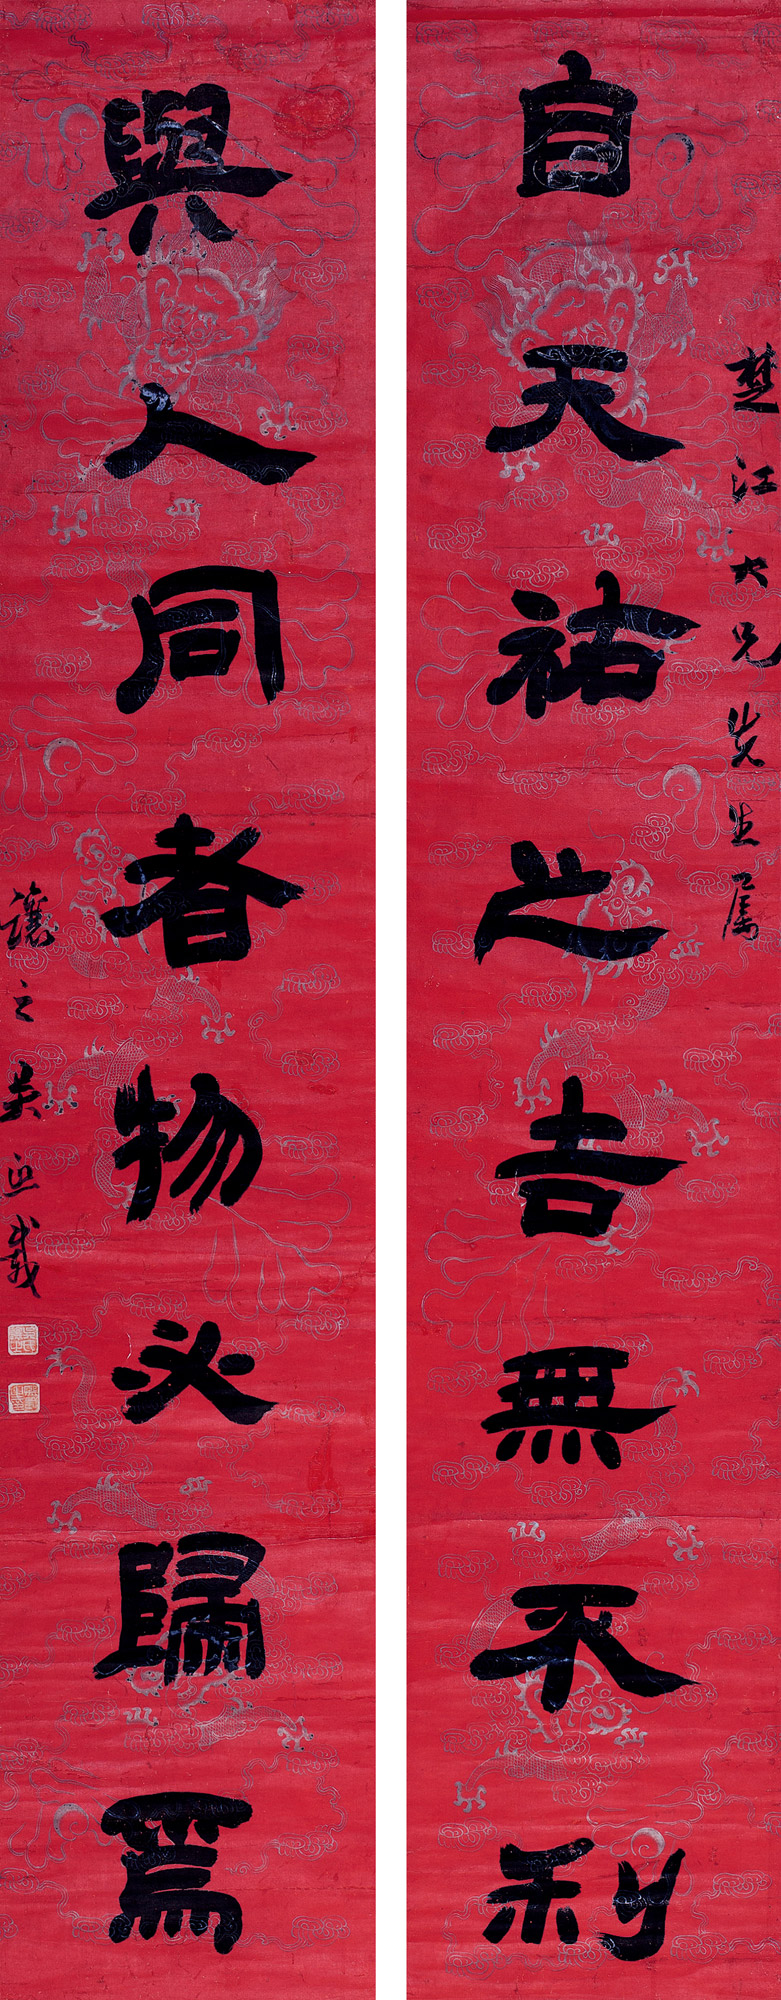 楚江大兄先生属
自天祐之吉無不利
與人同者物必歸焉
讓之吴熙載